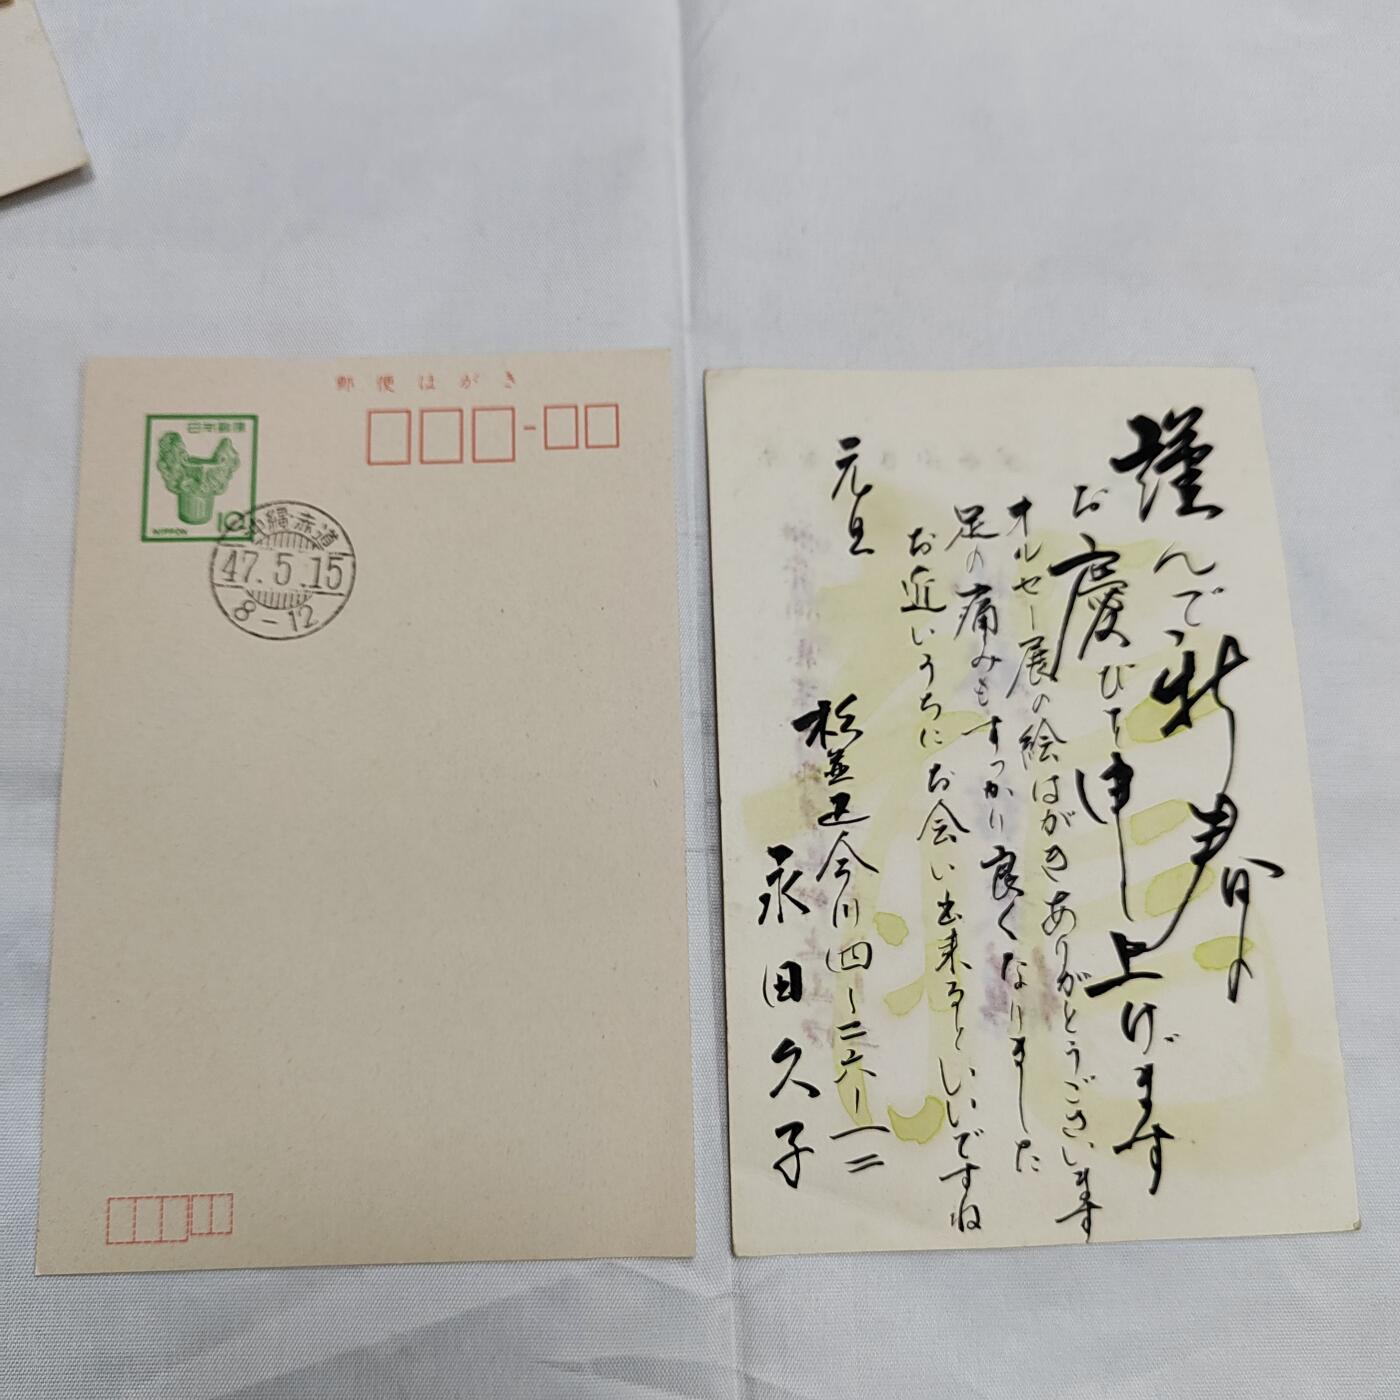 郵便はがき
日本郵便
10
NIPPON
沖縄・赤道
47.5.15
8-12
謹んで新春の
お慶びを申し上げます
オルセー展の絵はがきありがとうございます
足の痛みもすっかり良くなりました
お近いうちにお会い出来るといいですね
元旦
杉並区今川四ー二六ー一二
永田久子